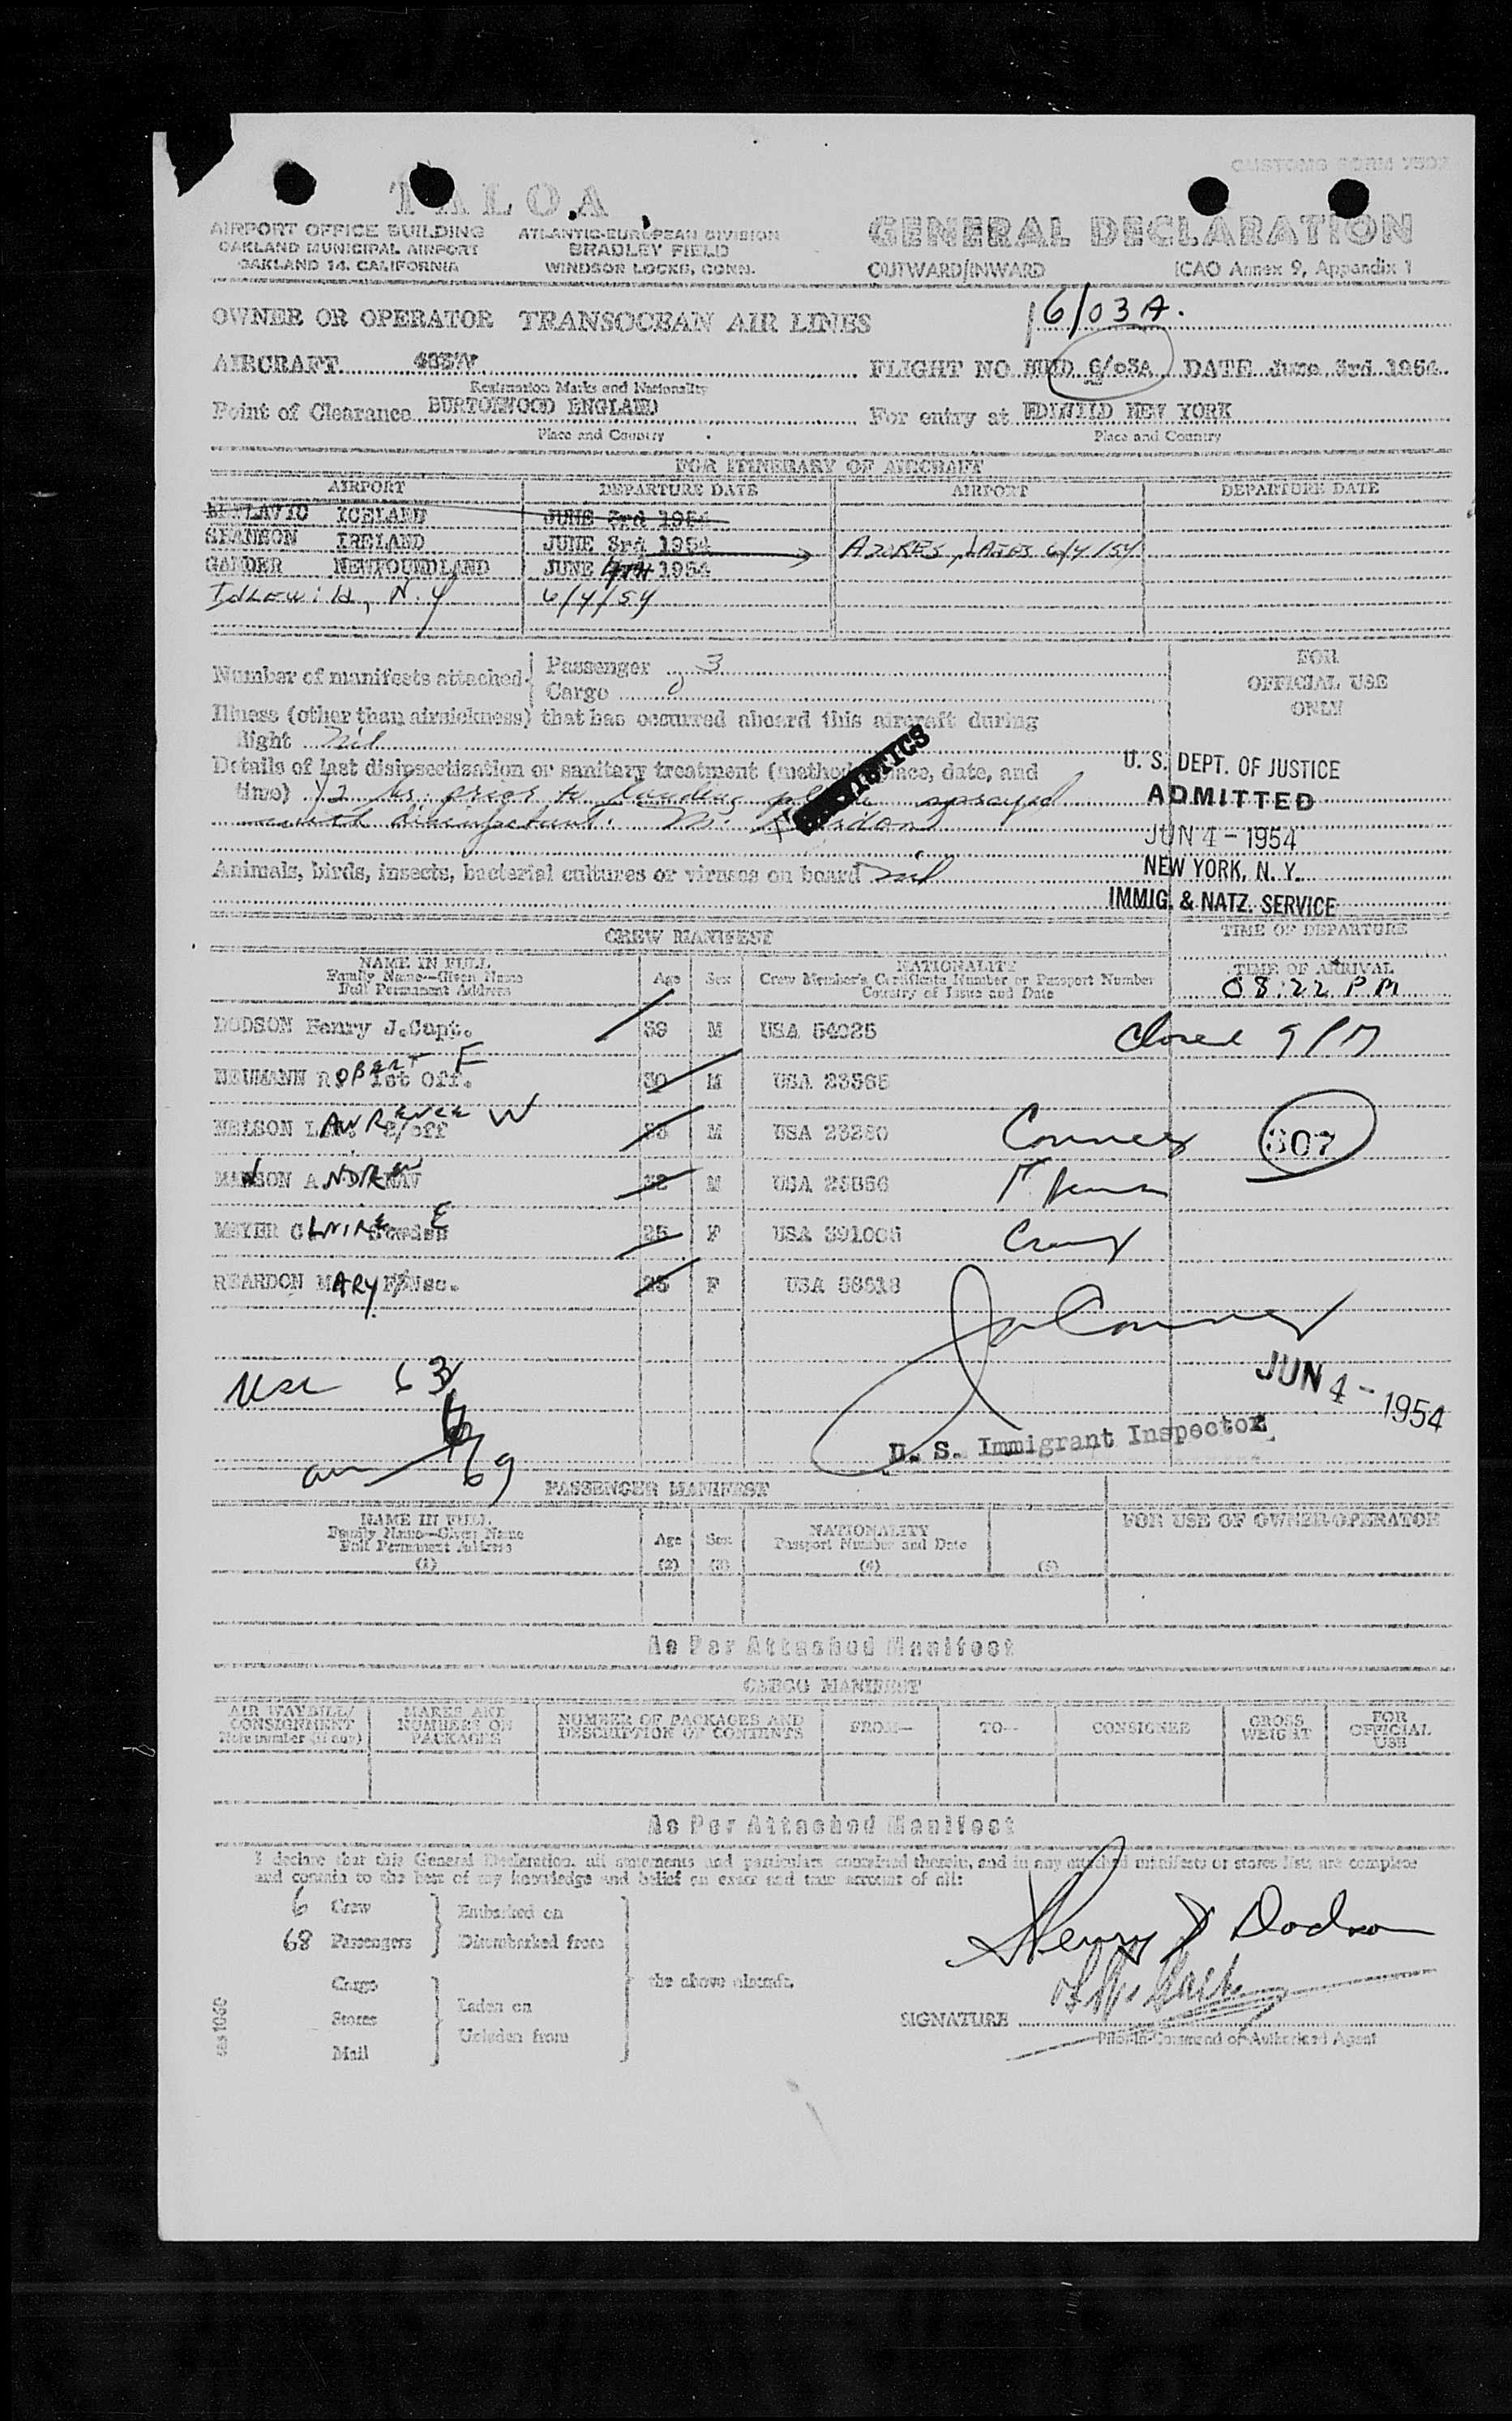 CUSTOMS FORM 7507
TALOA
AIRPORT OFFICE BUILDING
OAKLAND MUNICIPAL AIRPORT
OAKLAND 14, CALIFORNIA
ATLANTIC-EUROPEAN DIVISION
BRADLEY FIELD
WINDSOR LOCKS, CONN.
GENERAL DECLARATION
OUTWARD/INWARD ICAO Annex 9, Appendix 1
OWNER OR OPERATOR TRANSOCEAN AIR LINES
6/03A.
AIRCRAFT FLIGHT NO. 6/03A DATE June 3rd 1954
Registration Marks and Nationality
Point of Clearance BURTONWOOD ENGLAND For entry at IDLWILD NEW YORK
Place and Country Place and Country
FOR ITINERARY OF AIRCRAFT
AIRPORT DEPARTURE DATE AIRPORT DEPARTURE DATE
KEFLAVIC ICELAND JUNE 3rd 1954
SHANNON IRELAND JUNE 3rd 1954 AZORES, LAJES 6/4/54
GANDER NEWFOUNDLAND JUNE 4TH 1954
Idlewild, N.Y 6/4/54
Number of manifests attached Passenger 3
Cargo 0
FOR
OFFICIAL USE
ONLY
Illness (other than airsickness) that has occurred aboard this aircraft during
flight nil
Details of last disinsectization or sanitary treatment (method, place, date, and
time) 1/2 hr. prior to landing plane sprayed
with disinfectant. M. Reardon
STATISTICS
Animals, birds, insects, bacterial cultures or viruses on board nil
U. S. DEPT. OF JUSTICE
ADMITTED
JUN 4 - 1954
NEW YORK, N. Y.
IMMIG. & NATZ. SERVICE
CREW MANIFEST
TIME OF DEPARTURE
NAME IN FULL
Family Name—Given Name
Full Permanent Address
Age Sex
NATIONALITY
Crew Member's Certificate Number or Passport Number
Country of Issue and Date
TIME OF ARRIVAL
08:22 PM
DODSON Henry J.Capt. 39 M USA 54025
Closed 9 PM
NEUMANN ROBERT F 1st Off. 30 M USA 23565
NELSON LAWRENCE W 2/off M USA 23280
Connes
307
ANDREW NAV 32 M USA
MEYER CLAIRE E 25 F USA
REARDON MARY 25 F USA
USC 63
69
JUN 4 - 1954
U. S. Immigrant Inspector
PASSENGER MANIFEST
NAME IN FULL
Family Name—Given Name
Full Permanent Address
(1)
Age
(2)
Sex
(3)
NATIONALITY
Passport Number and Date
(4)
(5)
FOR USE OF OWNER-OPERATOR
As Per Attached Manifest
CARGO MANIFEST
AIR WAYBILL/
CONSIGNMENT
Note number (if any)
MARKS AND
NUMBERS ON
PACKAGES
NUMBER OF PACKAGES AND
DESCRIPTION OF CONTENTS
FROM— TO— CONSIGNEE
GROSS
WEIGHT
FOR
OFFICIAL
USE
As Per Attached Manifest
I declare that this General Declaration, all statements and particulars contained therein, and in any attached manifests or stores lists are complete
and contain to the best of my knowledge and belief an exact and true account of all:
6 Crew
68 Passengers
Embarked on
Disembarked from
Cargo
Stores
Mail
Laden on
Unladen from
the above aircraft.
Henry J Dodson
SIGNATURE
Pilot-in-Command or Authorized Agent